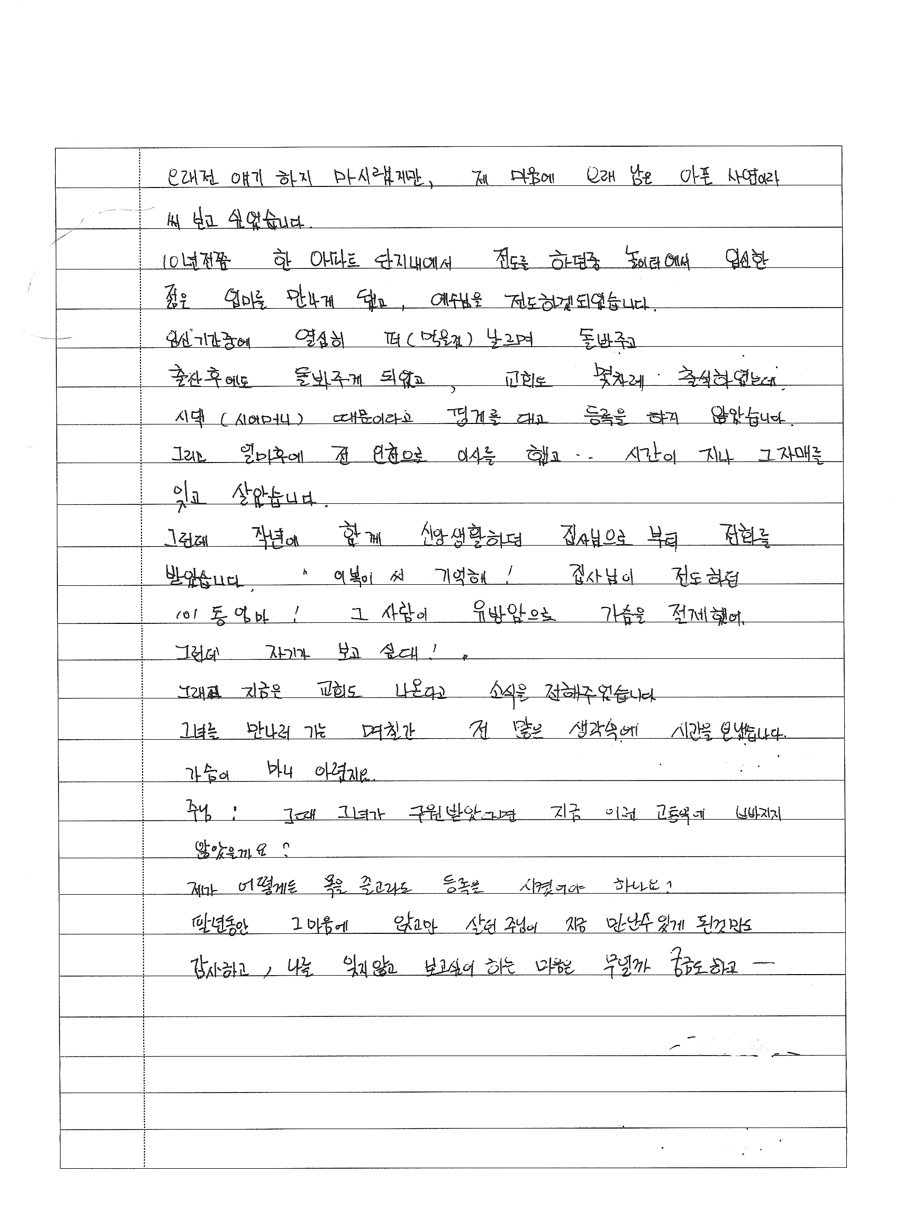 오래전 얘기 하지 마시랬지만, 제 마음에 오래 남은 아픈 사연이라
써 보고 싶었습니다.
10년전쯤 한 아파트 단지내에서 전도를 하던중 놀이터에서 임신한
젊은 엄마를 만나게 됐고, 예수님을 전도하게되었습니다.
임신기간중에 열심히 퍼(먹을걸) 날르며 돌봐주고
출산후에도 돌봐주게 되었고, 교회도 몇차례 출석하였는데
시댁 (시어머니) 때문이라고 핑계를 대고 등록을 하지 않았습니다.
그리고 얼마후에 전 인천으로 이사를 했고.. 시간이 지나 그자매를
잊고 살았습니다.
그런데 작년에 함께 신앙생활하던 집사님으로 부터 전화를
받았습니다. " 이복이 씨 기억해! 집사님이 전도하던
101동 엄마! 그 사람이 유방암으로 가슴을 전제했어.
그런데 자기가 보고 싶대!.
그래 지금은 교회도 나온다고 소식을 전해주었습니다
그녀를 만나러 가는 며칠간 전 많은 생각속에 시간을 보냈습니다.
가슴이 마니 아렸지요.
주님! 그때 그녀가 구원받았더라면 지금 이런 고통속에 빠지지
않았을까요?
제가 어떻게든 목을 졸라도 등록을 시켰어야 하나요?
팔년동안 그마음에 앉고만 살던 주님이 지금 만난수있게 된것만도
감사하고, 나를 잊지않고 보고싶어 하는 마음은 무얼까 궁금도하고 —